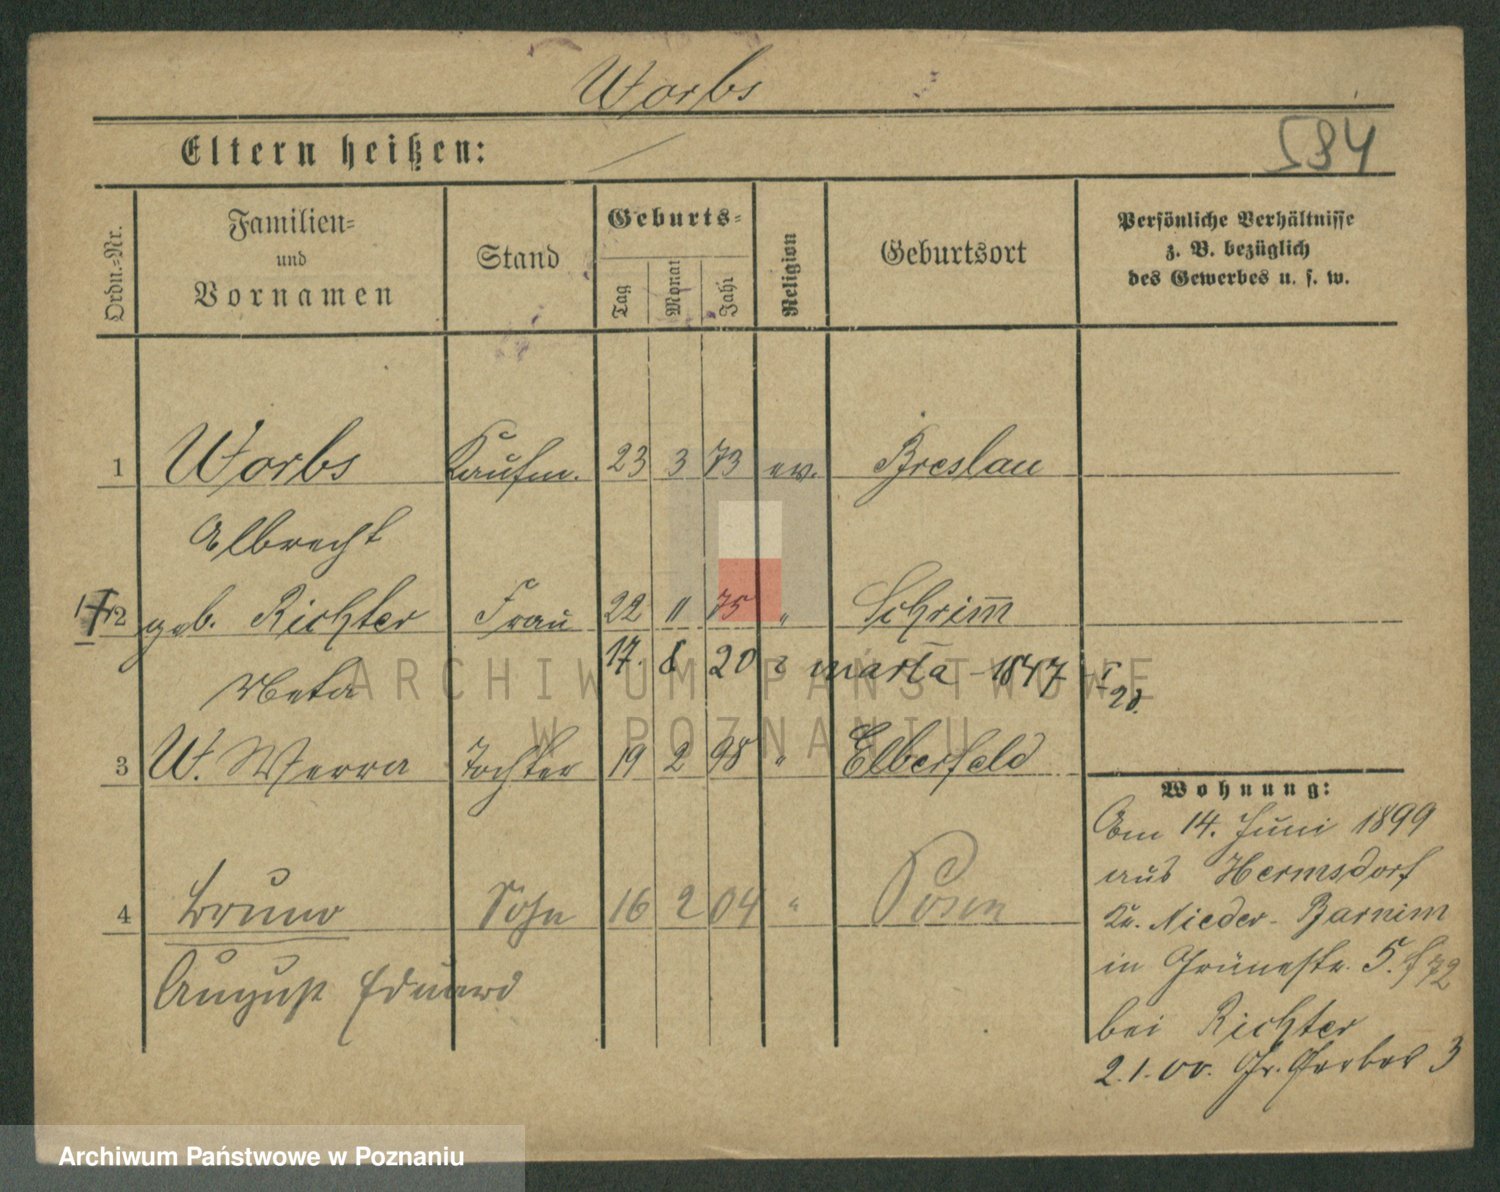 Worbs
Eltern heißen:
584
Ordn.-Nr.
Familien-
und
Vornamen
Stand
Geburts-
Tag
Monat
Jahr
Religion
Geburtsort
Persönliche Verhältnisse
z. B. bezüglich
des Gewerbes u. s. w.
1 Worbs Kaufm. 23 3 73 ev. Breslau
Albrecht
2 geb. Richter Frau 22 11 75 " Schrimm
17. 8 20 marta - 1847
Meta
3 W. Werra Tochter 19 2 98 " Elberfeld
Wohnung:
Am 14. Juni 1899
aus Hermsdorf
Kr. Nieder-Barnim
in Grünestr. 5.
bei Richter
2.1.00. Gr. Gerber 3
4 Bruno Sohn 16 2 04 " Posen
August Eduard
ARCHIWUM PAŃSTWOWE
W POZNANIU
Archiwum Państwowe w Poznaniu